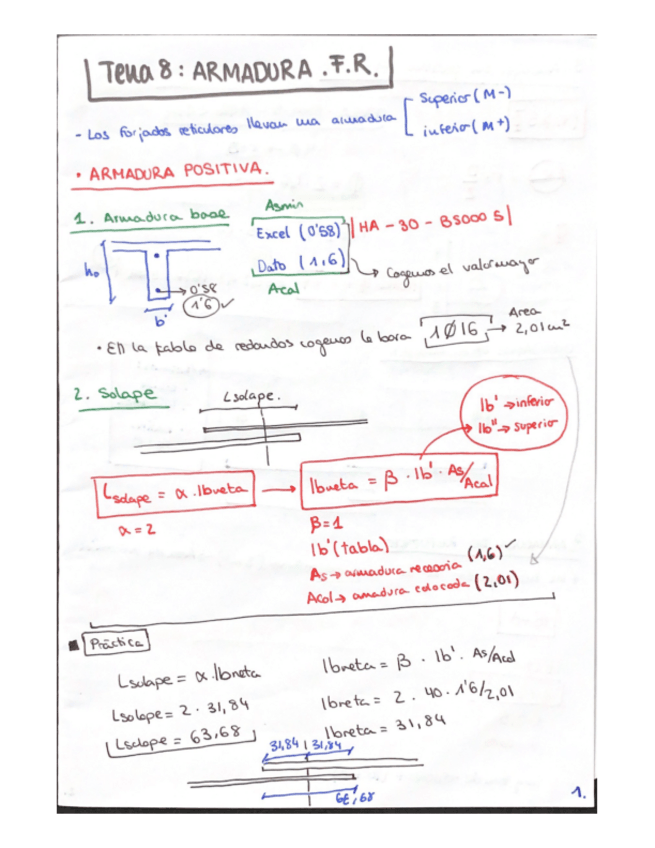 Tema 8: ARMADURA .F.R.
- Los forjados reticulares llevan una armadura
Superior (M-)
inferior (M+)
• ARMADURA POSITIVA.
1. Armadura base
Asmin
Excel (0'58)
Dato (1,6)
Acal
|HA - 30 - B5000 S|
Cogemos el valor mayor
ho
0'58
1'6 ✓
b'
• En la tabla de redondos cogemos la barra 1Ø16 → Area
2,01 cm²
2. Solape
Lsolape.
lb' → inferior
lb" → superior
Lsolape = α . lbneta → lbneta = β · lb' · As/Acal
α = 2
β = 1
lb' (tabla)
As → armadura necesaria (1,6) ✓
Acal → armadura colocada (2,01)
■ Práctica
Lsolape = α . lbneta
lbneta = β . lb' . As/Acal
Lsolape = 2 . 31,84
lbneta = 2 . 40 . 1'6/2,01
Lsolape = 63,68
lbneta = 31,84
31,84 | 31,84
1.